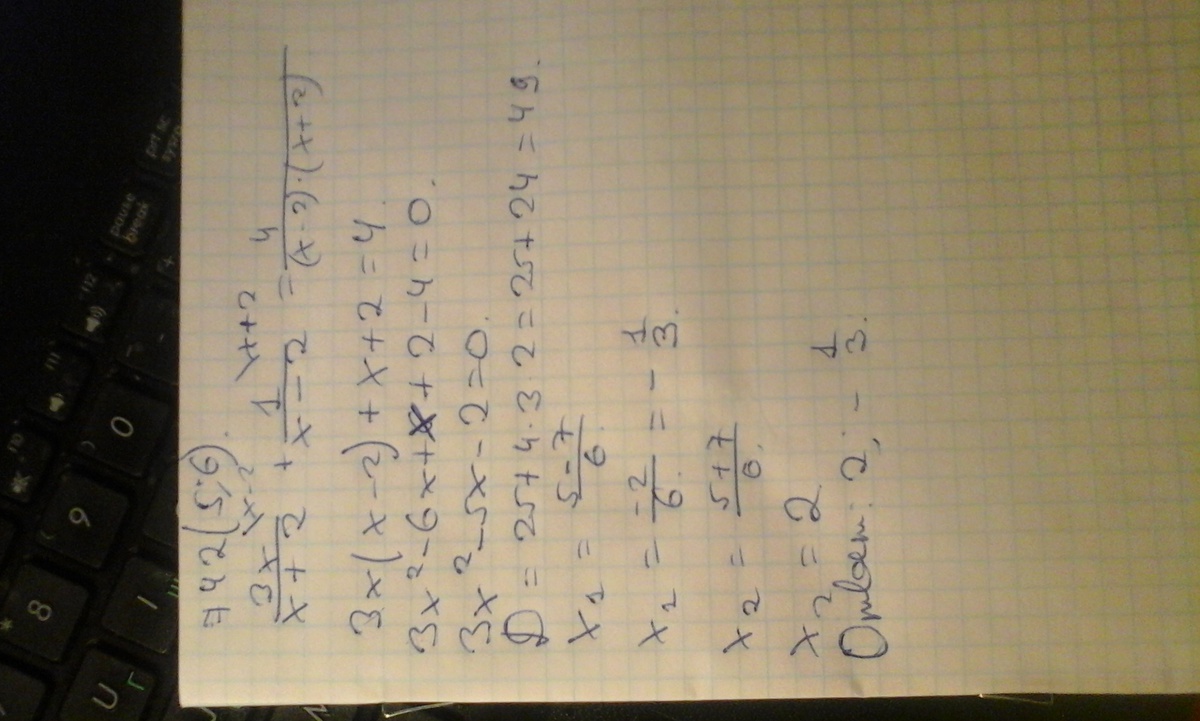 742(5;6).
3x/(x+2) \x-2 + 1/(x-2) \x+2 = 4/((x-2)·(x+2))
3x(x-2)+x+2=4.
3x²-6x+x+2-4=0.
3x²-5x-2=0.
D=25+4·3·2=25+24=49.
x₁=(5-7)/6.
x₁=-2/6=-1/3.
x₂=(5+7)/6.
x₂=2.
Ответ: 2; -1/3.
* 8
9
* f10
) 0
f11
f12
-
+
pause
break
prt sc
sysrq
U Г
I